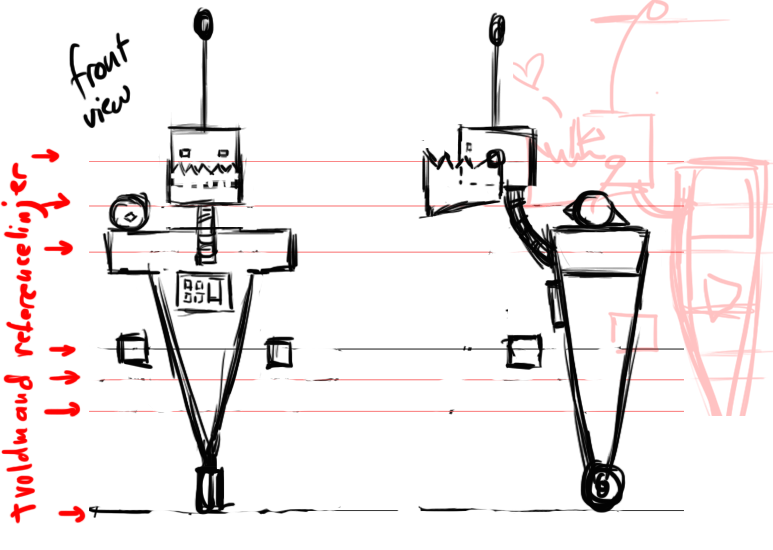 front
view
tvoldmand referencelinjer